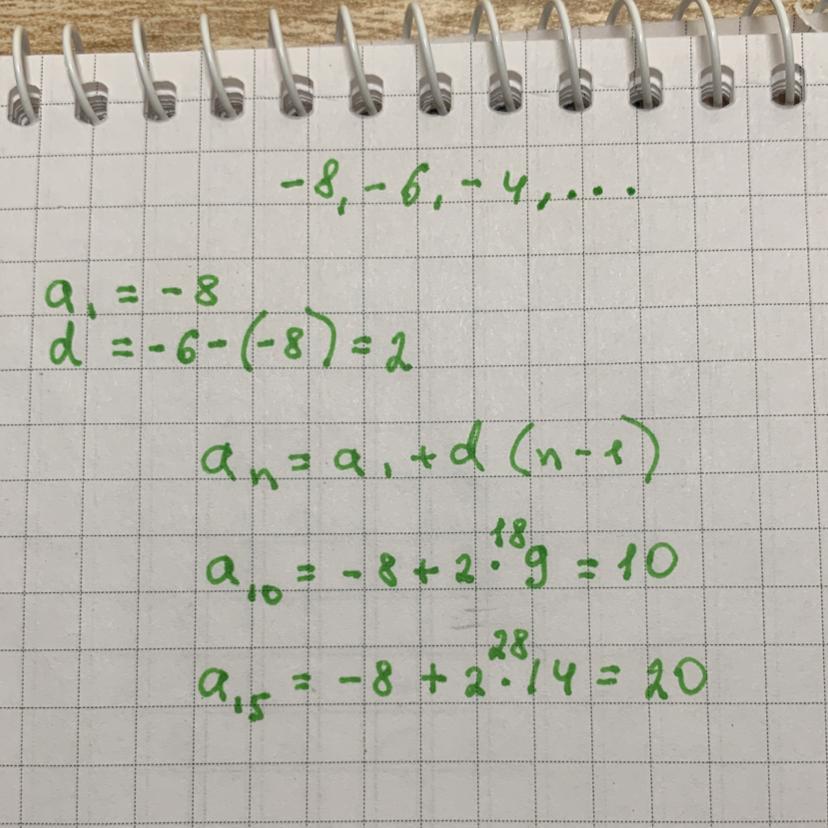 -8, -6, -4, ...
a₁ = -8
d = -6-(-8) = 2
aₙ = a₁ + d (n-1)
18
a₁₀ = -8 + 2 · 9 = 10
28
a₁₅ = -8 + 2 · 14 = 20